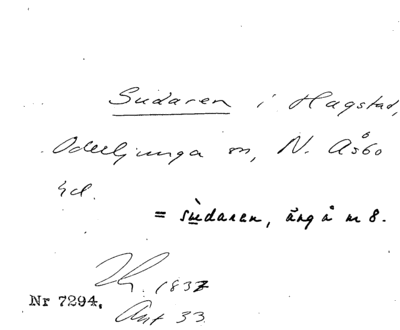 Sudaren i Hagstad,
Oderljunga sn, N. Åsbo
hd.
= sùdaren, äng å n 8.
1837
Nr 7294.
Ant 33